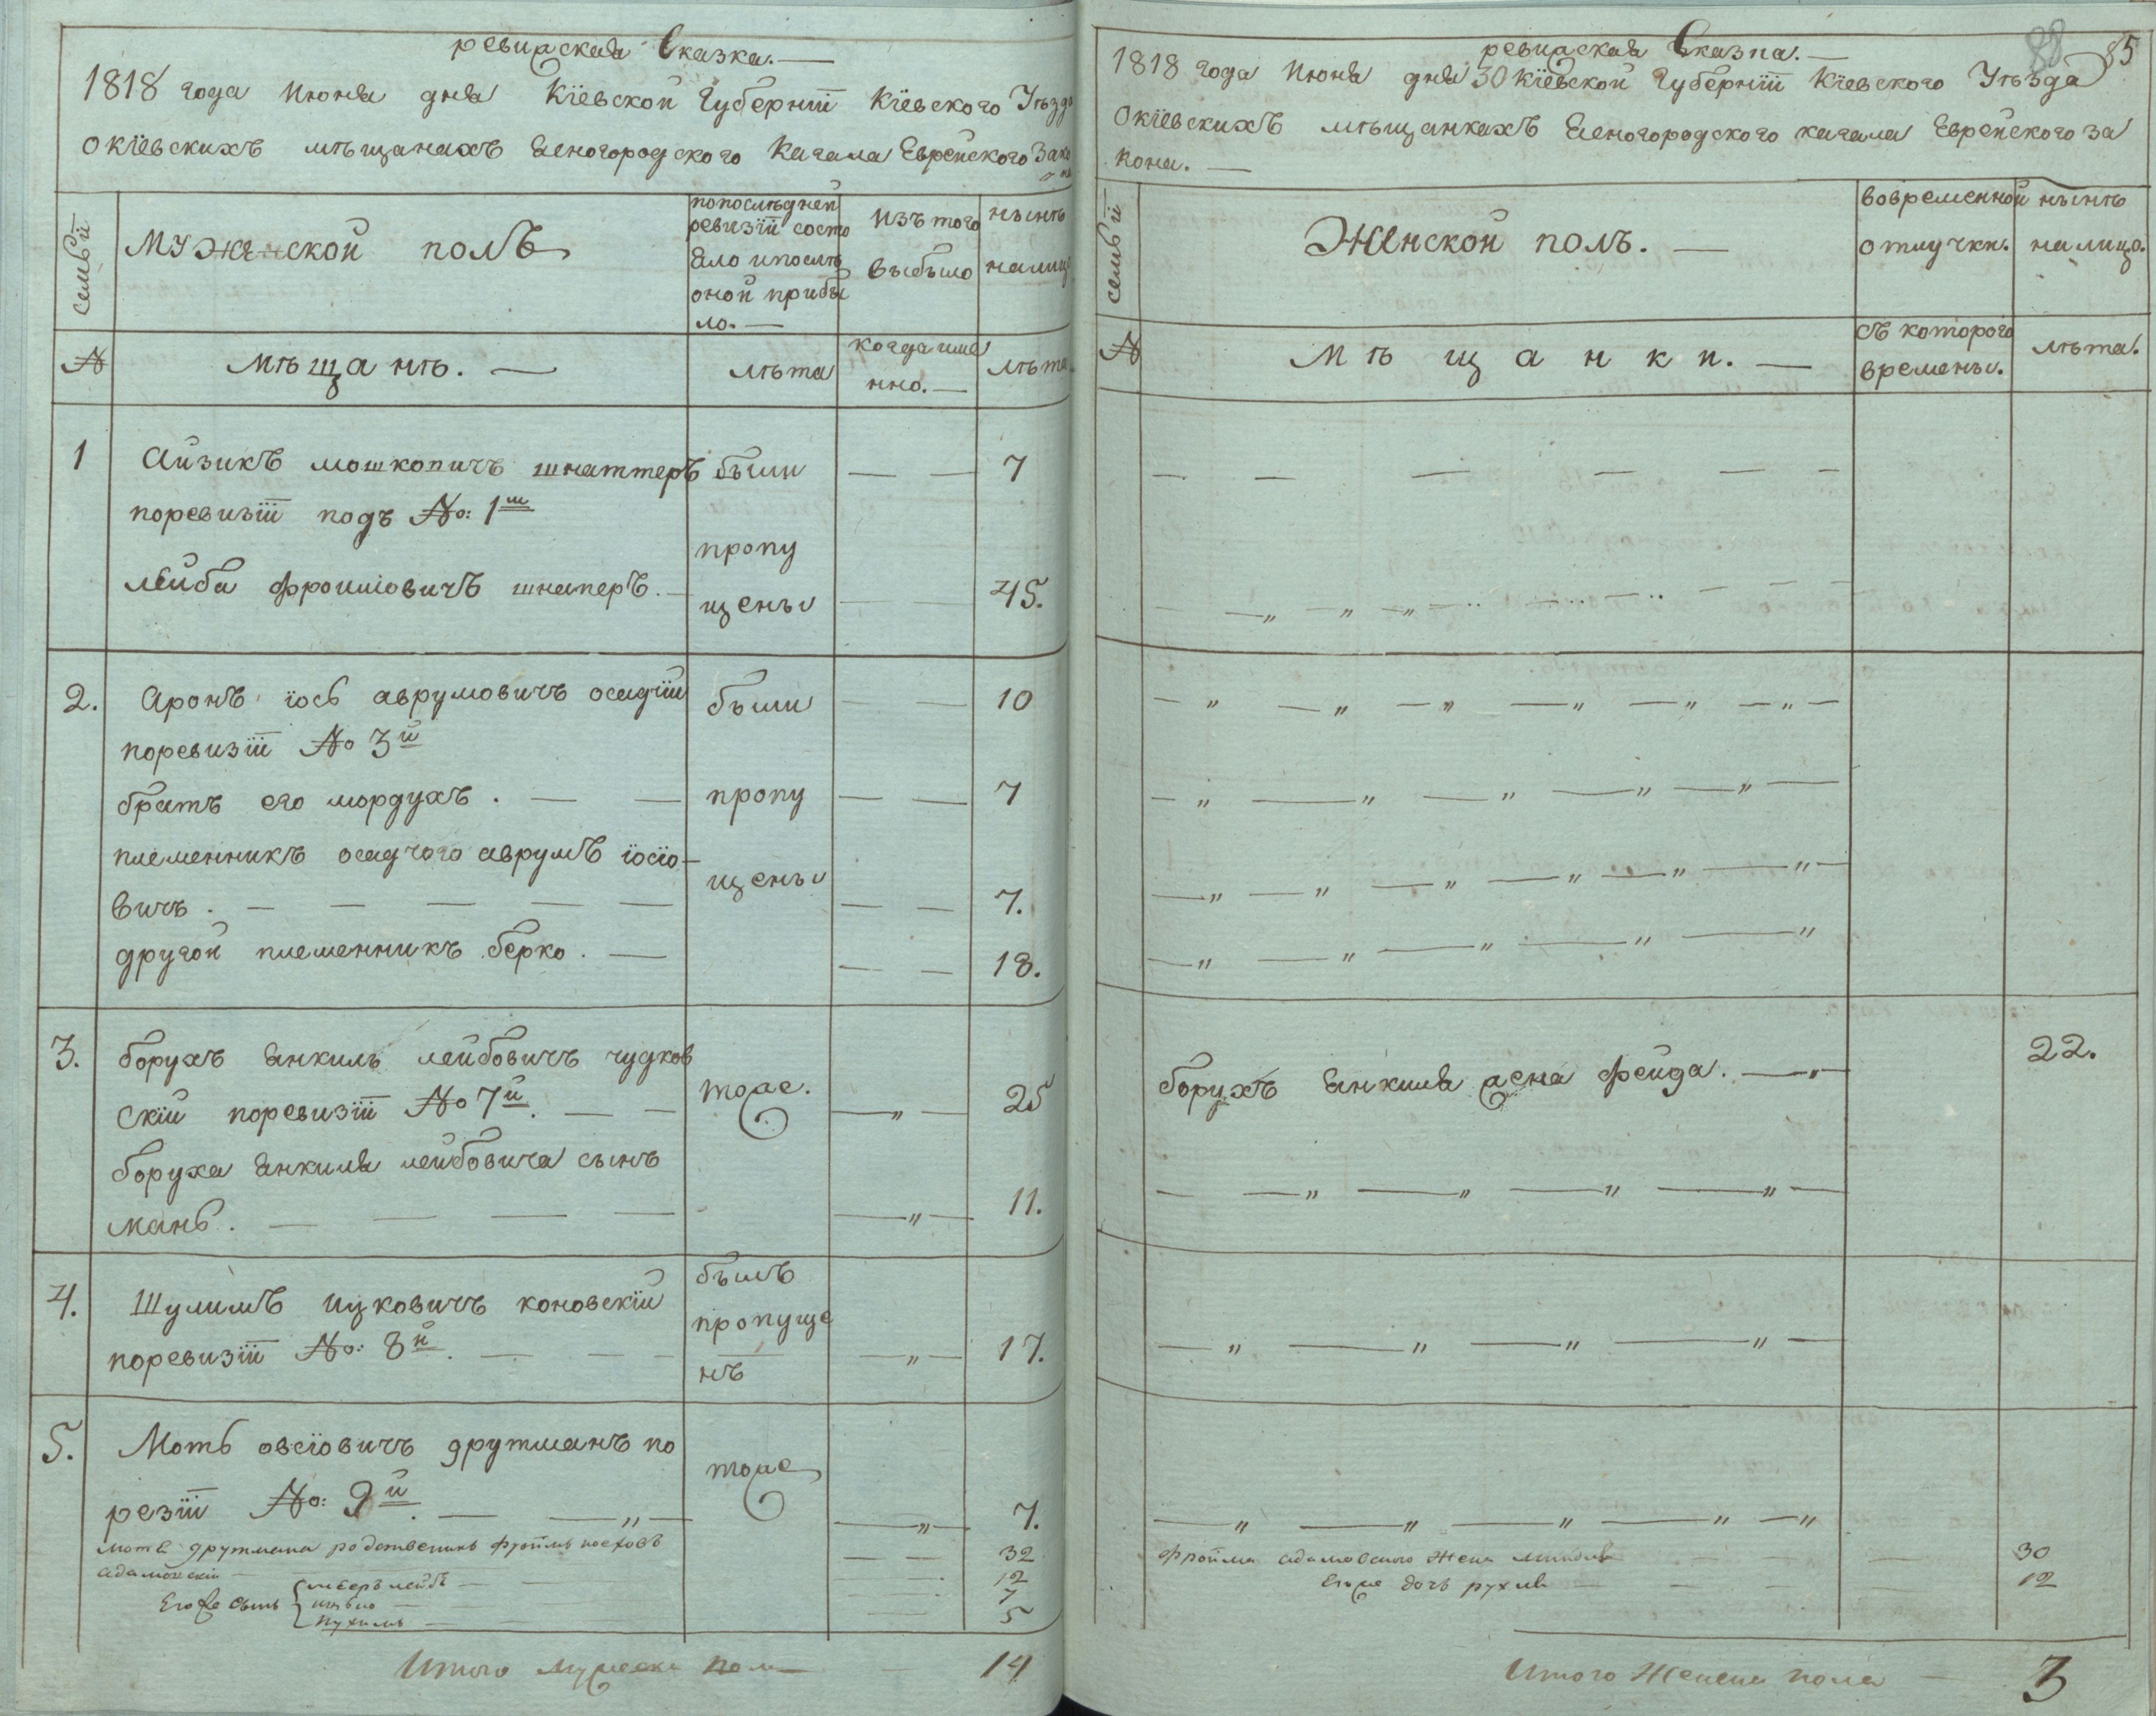 ревизская Сказка. —
1818 года Июня дня Кіевской Губерніи Кіевского Уѣзда
о кіевскихъ мѣщанахъ Беногородского Кагала Еврейского Зако
на
семьи
Мужеской полъ
попослѣдней
ревизіи состо
яло и послѣ
оной прибы
ло. —
Изъ того
выбыло
нынѣ
налицо
№
Мѣщанѣ. —
лѣта
когда име
нно. —
лѣта
1
Айзикъ мошковичъ шнаттеръ
были
7
поревизіи подъ №: 1м
пропу
лейба фроимовичъ шнаперъ. —
щены
45.
2.
Аронъ іось аврумовичъ осадчій
были
10
поревизіи № 3й
братъ его мордухъ. — —
пропу
7
племенникъ осадчого аврумъ іосіо-
щены
вичъ. — — — — —
7.
другой племенникъ берко. —
18.
3.
борухъ Янкиль лейбовичъ чудков
скій поревизіи № 7й. — —
тоже.
25
боруха Янкиля лейбовича сынъ
мань. — — — —
11.
4.
Шулимъ ицковичъ коновскій
былъ
пропуще
нъ
поревизіи №: 8й. — —
17.
5.
Моть овсіовичъ друтманъ по
тоже
резіи №: 9й. — —
7.
мотя друтмана родственикъ фроймъ
32
адамовскій —
12
Его же сынъ
7
5
Итого мужеска пола
14
88
85
ревизская Сказка. —
1818 года Июня дня 30 Кіевской Губерніи Кіевского Уѣзда
о кіевскихъ мѣщанкахъ Беногородского кагала Еврейского за
кона. —
семьи
Женской полъ. —
вовременной
отлучки.
нынѣ
налицо.
№
Мѣщанки. —
съ которого
времены.
лѣта.
борухъ Янкиля жена фейда. —
22.
фройма адамовского жена
30
Его же дочь рухля
12
Итого Женска пола —
3